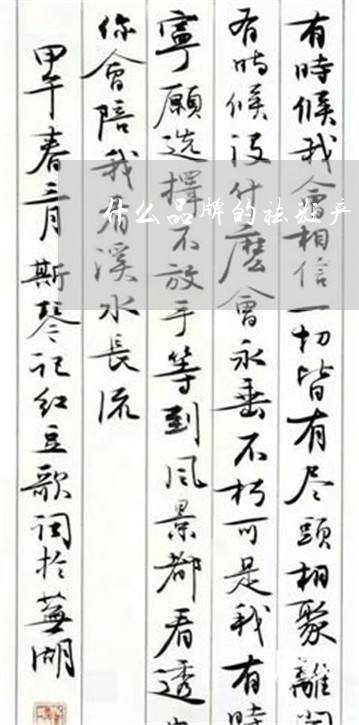 有時候我會相信一切皆有尽頭相聚離開
有時候没什麽會永垂不朽可是我有時
寧願选擇不放手等到风景都看透
你會陪我看溪水長流
甲午春三月斯琴记红豆歌词於蕪湖
什么品牌的祛妊产